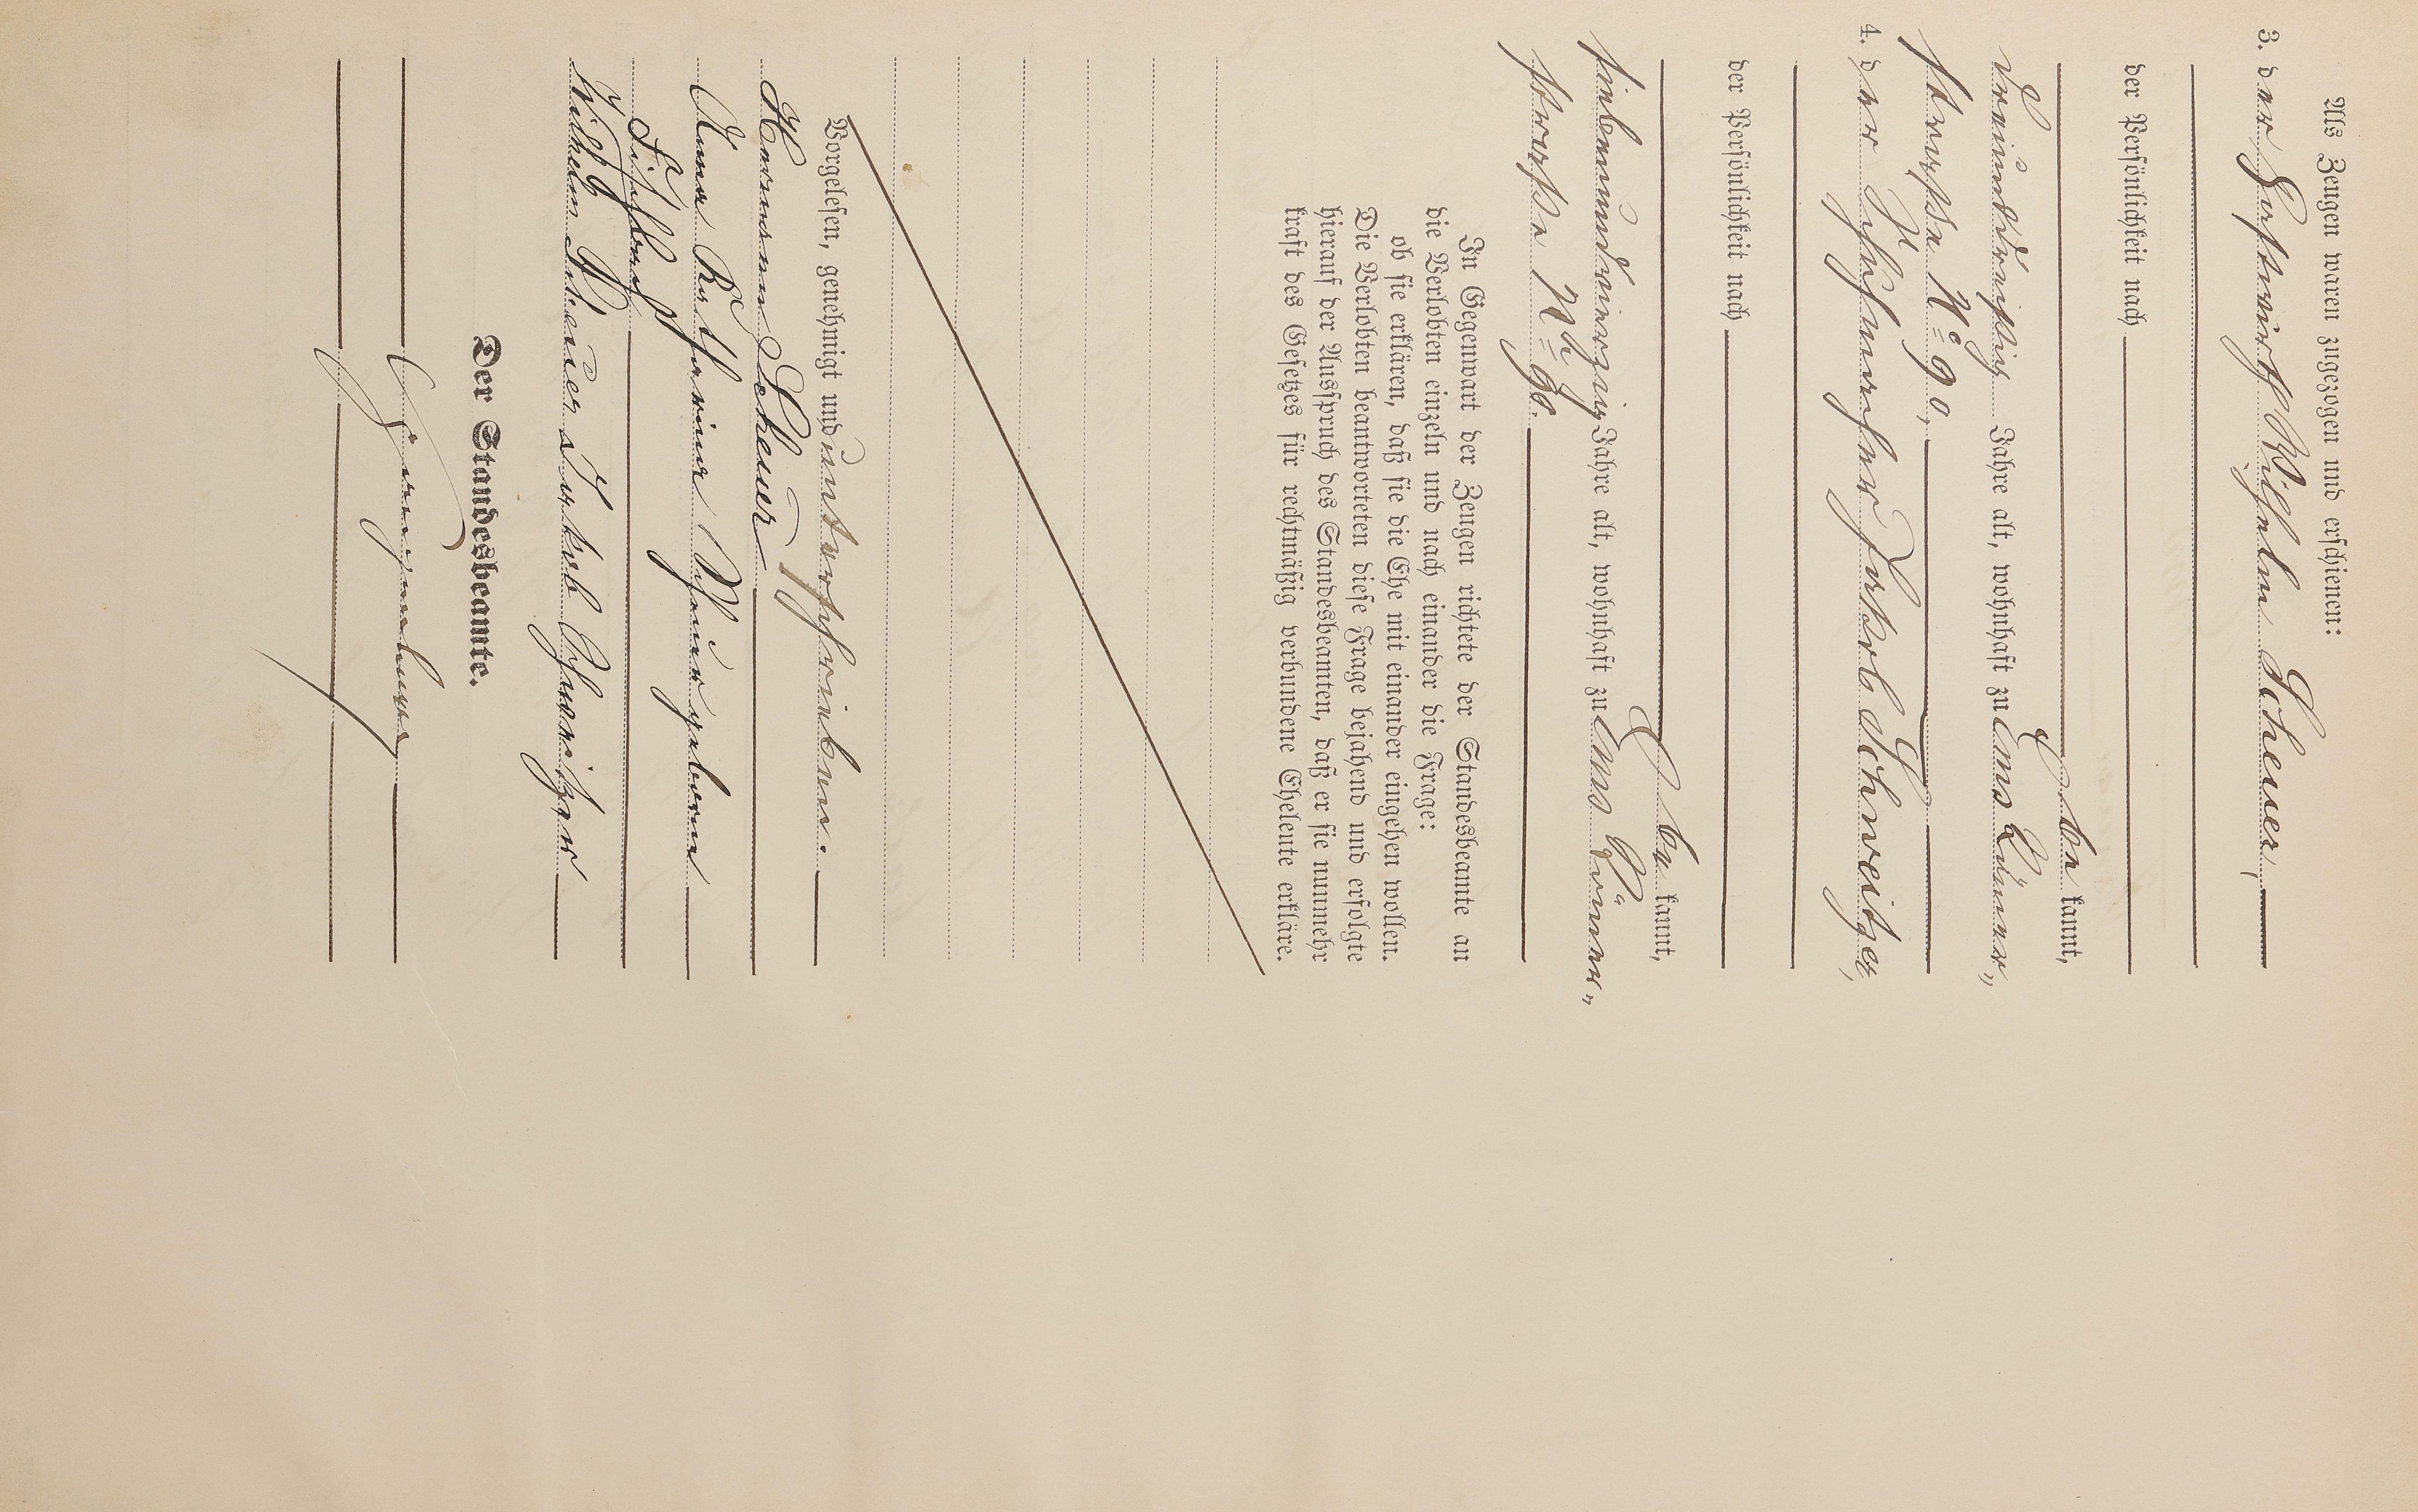 Als Zeugen waren zugezogen und erschienen:
3. der Gastwirth Wilhelm Scheuer,
der Persönlichkeit nach
be kannt,
dreiunddreißig Jahre alt, wohnhaft zu Ems Römer-
straße No 90,
4. der Schuhmacher Jakob Schweitzer,
der Persönlichkeit nach
be kannt,
siebenundvierzig Jahre alt, wohnhaft zu Ems Römer-
straße No
In Gegenwart der Zeugen richtete der Standesbeamte an
die Verlobten einzeln und nach einander die Frage:
ob sie erklären, daß sie die Ehe mit einander eingehen wollen.
Die Verlobten beantworteten diese Frage bejahend und erfolgte
hierauf der Ausspruch des Standesbeamten, daß er sie nunmehr
kraft des Gesetzes für rechtmäßig verbundene Eheleute erkläre.
Vorgelesen, genehmigt und unterschrieben.
Hermann Scheuer
Anna Katharina Scheuer geborne
Wilhelm Scheuer Jakob Schweitzer
Der Standesbeamte.